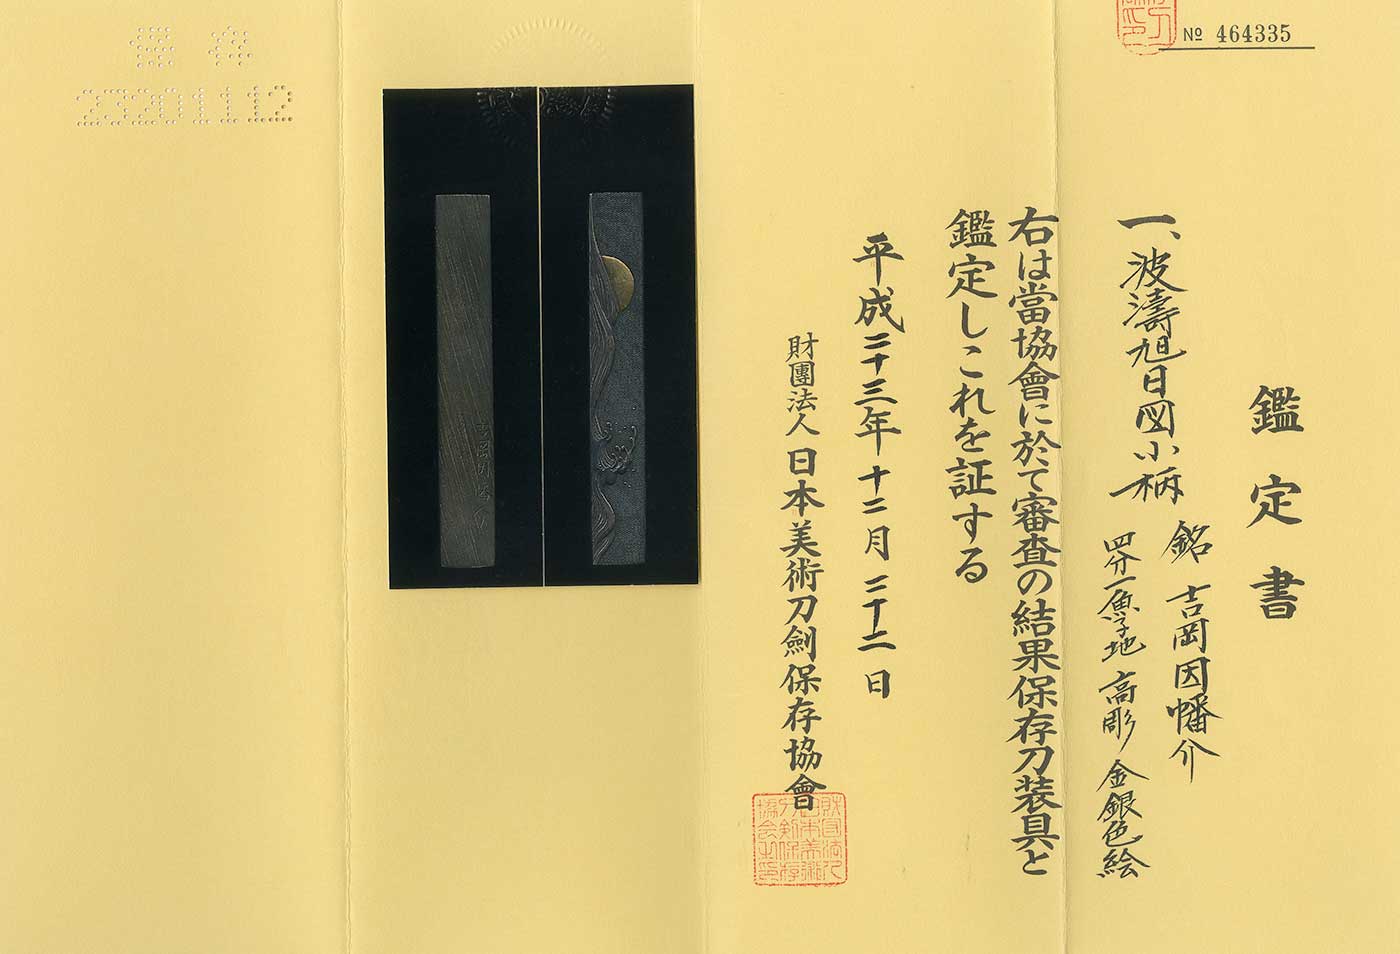 № 464335
鑑定書
一、波濤旭日図小柄
銘 吉岡因幡介
四分一魚子地 高彫 金銀色絵
右は當協會に於て審査の結果保存刀装具と
鑑定しこれを証する
平成二十三年十二月二十二日
財團法人日本美術刀劍保存協會
23201112
吉岡因幡介